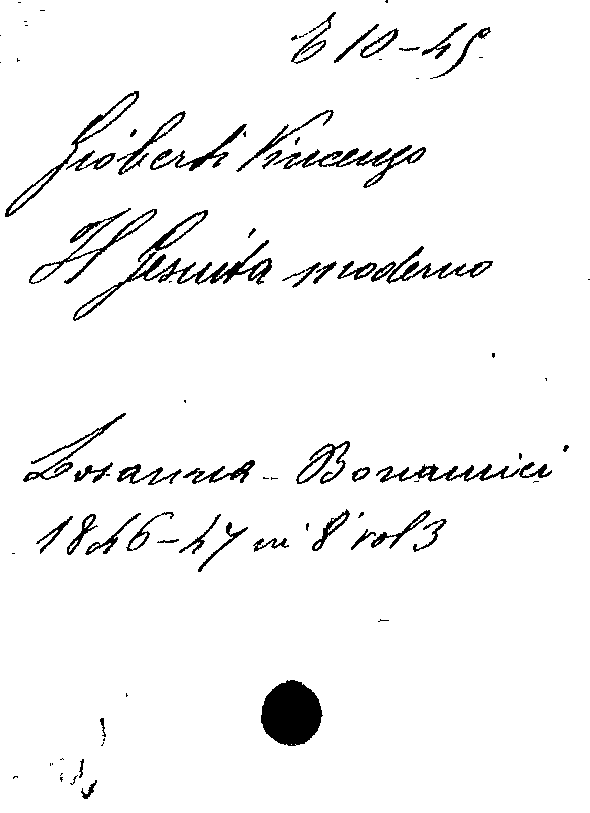 E 10-45
Gioberti Vincenzo
Il Gesuita moderno
Losanna - Bonamici
1846-47 in 8° vol 3